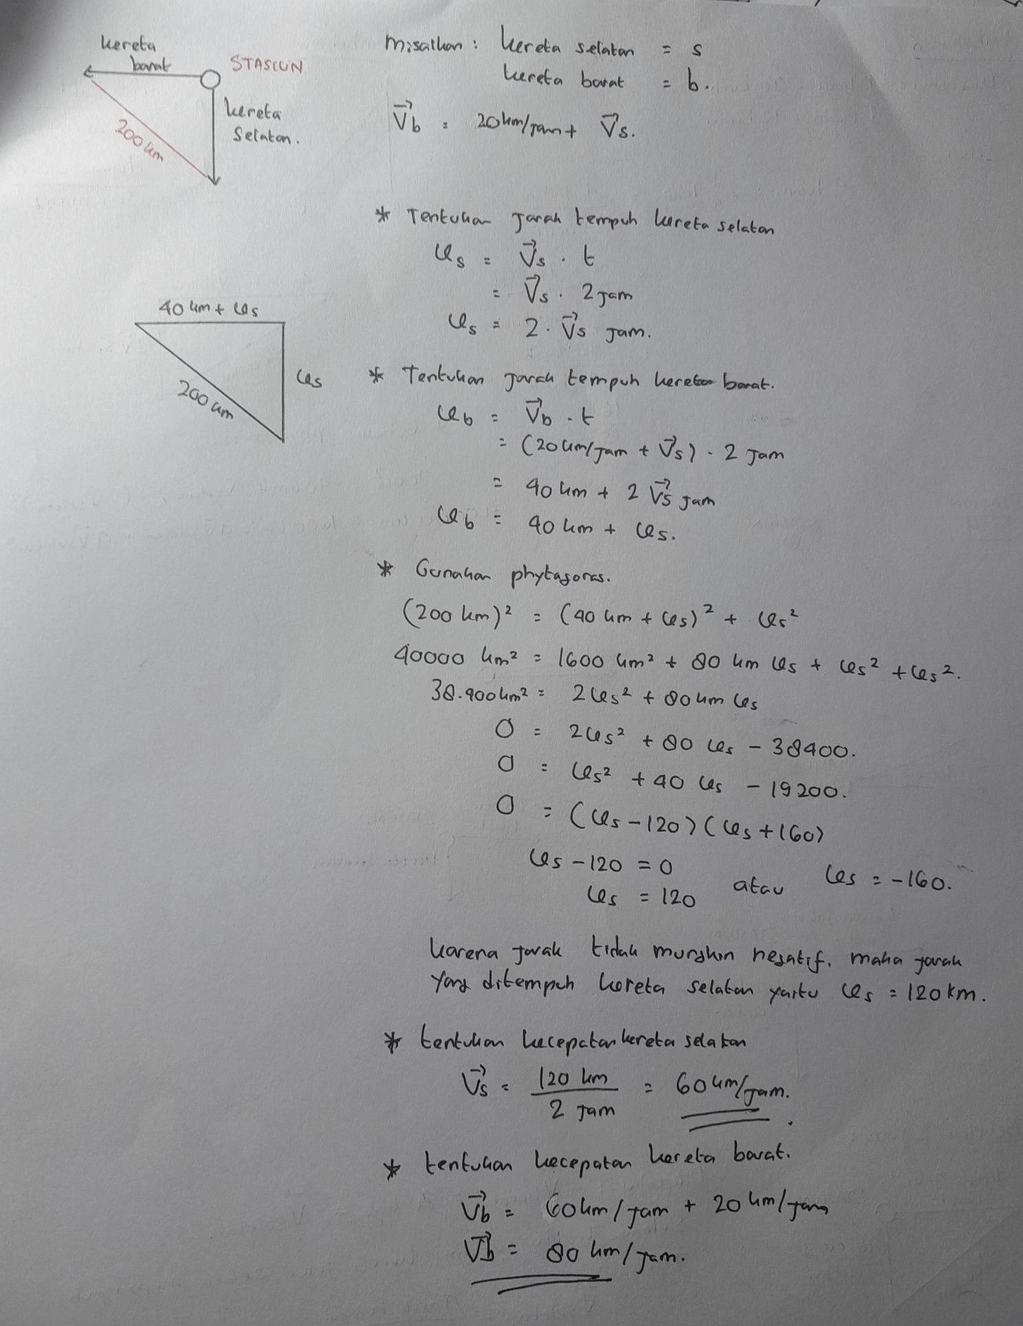 kereta
barat
STASIUN
kereta
selatan.
200 km
misalkan : kereta selatan = s
kereta barat = b.
V⃗b = 20 km/jam + V⃗s.
* Tentukan jarak tempuh kereta selatan
ls = V⃗s . t
= V⃗s . 2 jam
ls = 2 . V⃗s jam.
40 km + ls
ls
200 km
* Tentukan jarak tempuh kereta barat.
lb = V⃗b . t
= (20 km/jam + V⃗s) . 2 jam
= 40 km + 2 V⃗s jam
lb = 40 km + ls.
* Gunakan phytagoras.
(200 km)² = (40 km + ls)² + ls²
40000 km² = 1600 km² + 80 km ls + ls² + ls².
38.400 km² = 2ls² + 80 km ls
0 = 2ls² + 80 ls - 38400.
0 = ls² + 40 ls - 19200.
0 = (ls - 120) (ls + 160)
ls - 120 = 0
ls = 120 atau ls = -160.
karena jarak tidak mungkin negatif. maka jarak
yang ditempuh kereta selatan yaitu ls = 120 km.
* tentukan kecepatan kereta selatan
V⃗s = 120 km / 2 jam = 60 km/jam.
* tentukan kecepatan kereta barat.
V⃗b = 60 km/jam + 20 km/jam
V⃗b = 80 km/jam.